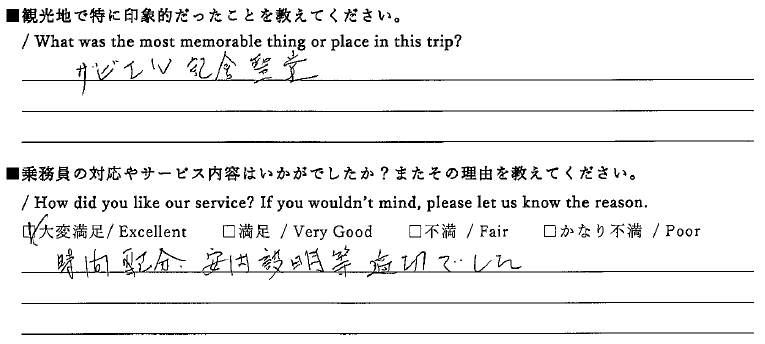 ■観光地で特に印象的だったことを教えてください。
/ What was the most memorable thing or place in this trip?
サビエル記念聖堂
■乗務員の対応やサービス内容はいかがでしたか？またその理由を教えてください。
/ How did you like our service? If you wouldn't mind, please let us know the reason.
☑大変満足 / Excellent □満足 / Very Good □不満 / Fair □かなり不満 / Poor
時間配分、案内説明等適切でした